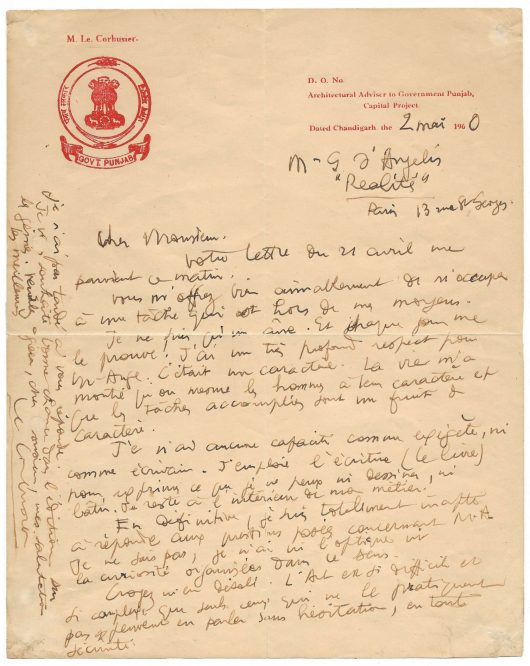 M. Le. Corbusier.
GOVT. PUNJAB
D. O. No.
Architectural Adviser to Government Punjab,
Capital Project.
Dated Chandigarh, the 2 mai 1960
Mr G d'Angelis
"Réalité"
Paris 13 rue St Georges.
Cher Monsieur.
Votre lettre du 21 avril me
parvient ce matin.
Vous m'offrez bien aimablement de m'occuper
à une tâche qui est hors de mes moyens.
Je ne suis qu'un âne. Et chaque jour me
le prouve. J'ai un très profond respect pour
M. Ange. C'était un caractère. La vie m'a
montré qu'on mesure les hommes à leur caractère et
que les tâches accomplies sont un fruit de
caractère.
Je n'ai aucune capacité comme exégète, ni
comme écrivain. J'emploie l'écriture (le livre)
pour exprimer ce que je ne peux ni dessiner, ni
bâtir. Je reste à l'intérieur de mon métier.
En définitive, je suis totalement inapte
à répondre aux questions posées concernant M. A
Je ne sais pas, je n'ai ni l'optique ni
la curiosité organisées dans ce sens.
Croyez m'en désolé. L'Art est si difficile et
si complexe que seuls ceux qui ne le pratiquent
pas peuvent en parler sans hésitation, en toute
sécurité.
Je n'ai pas tardé à vous répondre
Je vous souhaite bonne chance dans l'édition
veuillez agréer, cher monsieur, mes salutations
les meilleures
Le Corbusier